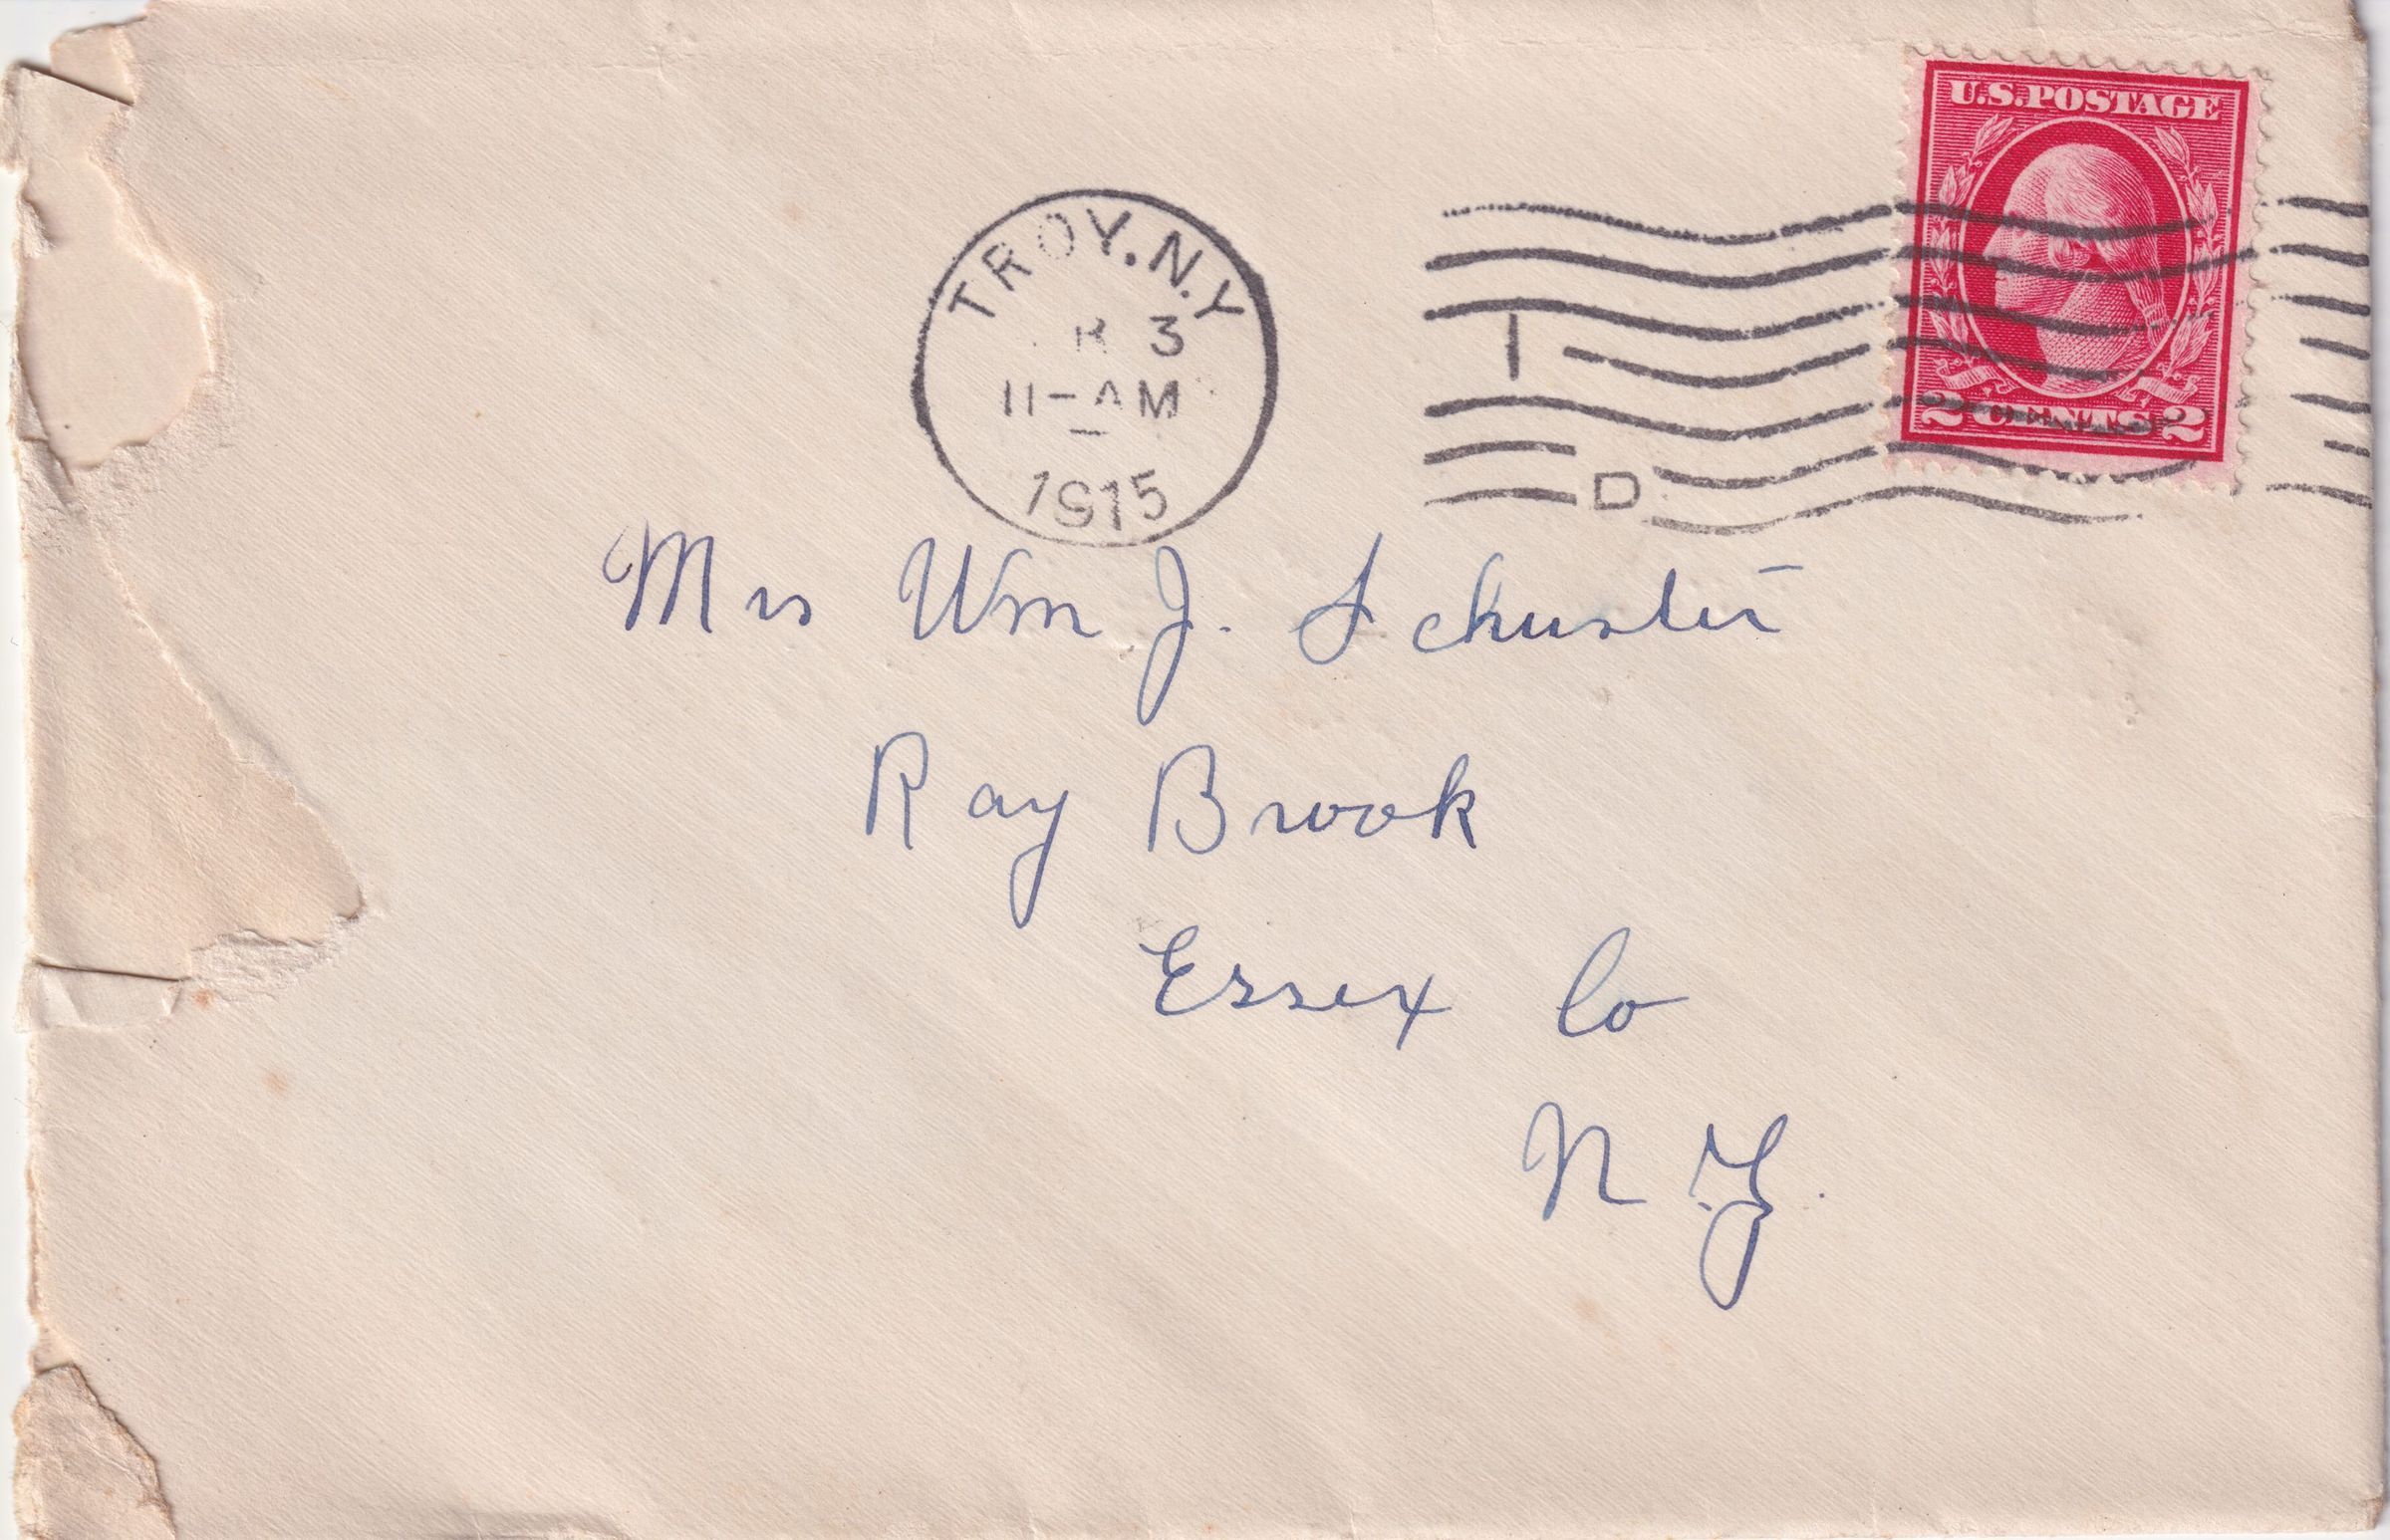 U.S. POSTAGE
2 CENTS 2
TROY, N.Y.
R 3
11-AM
1915
1
D
Mrs Wm J. Schuster
Ray Brook
Essex Co
N.Y.